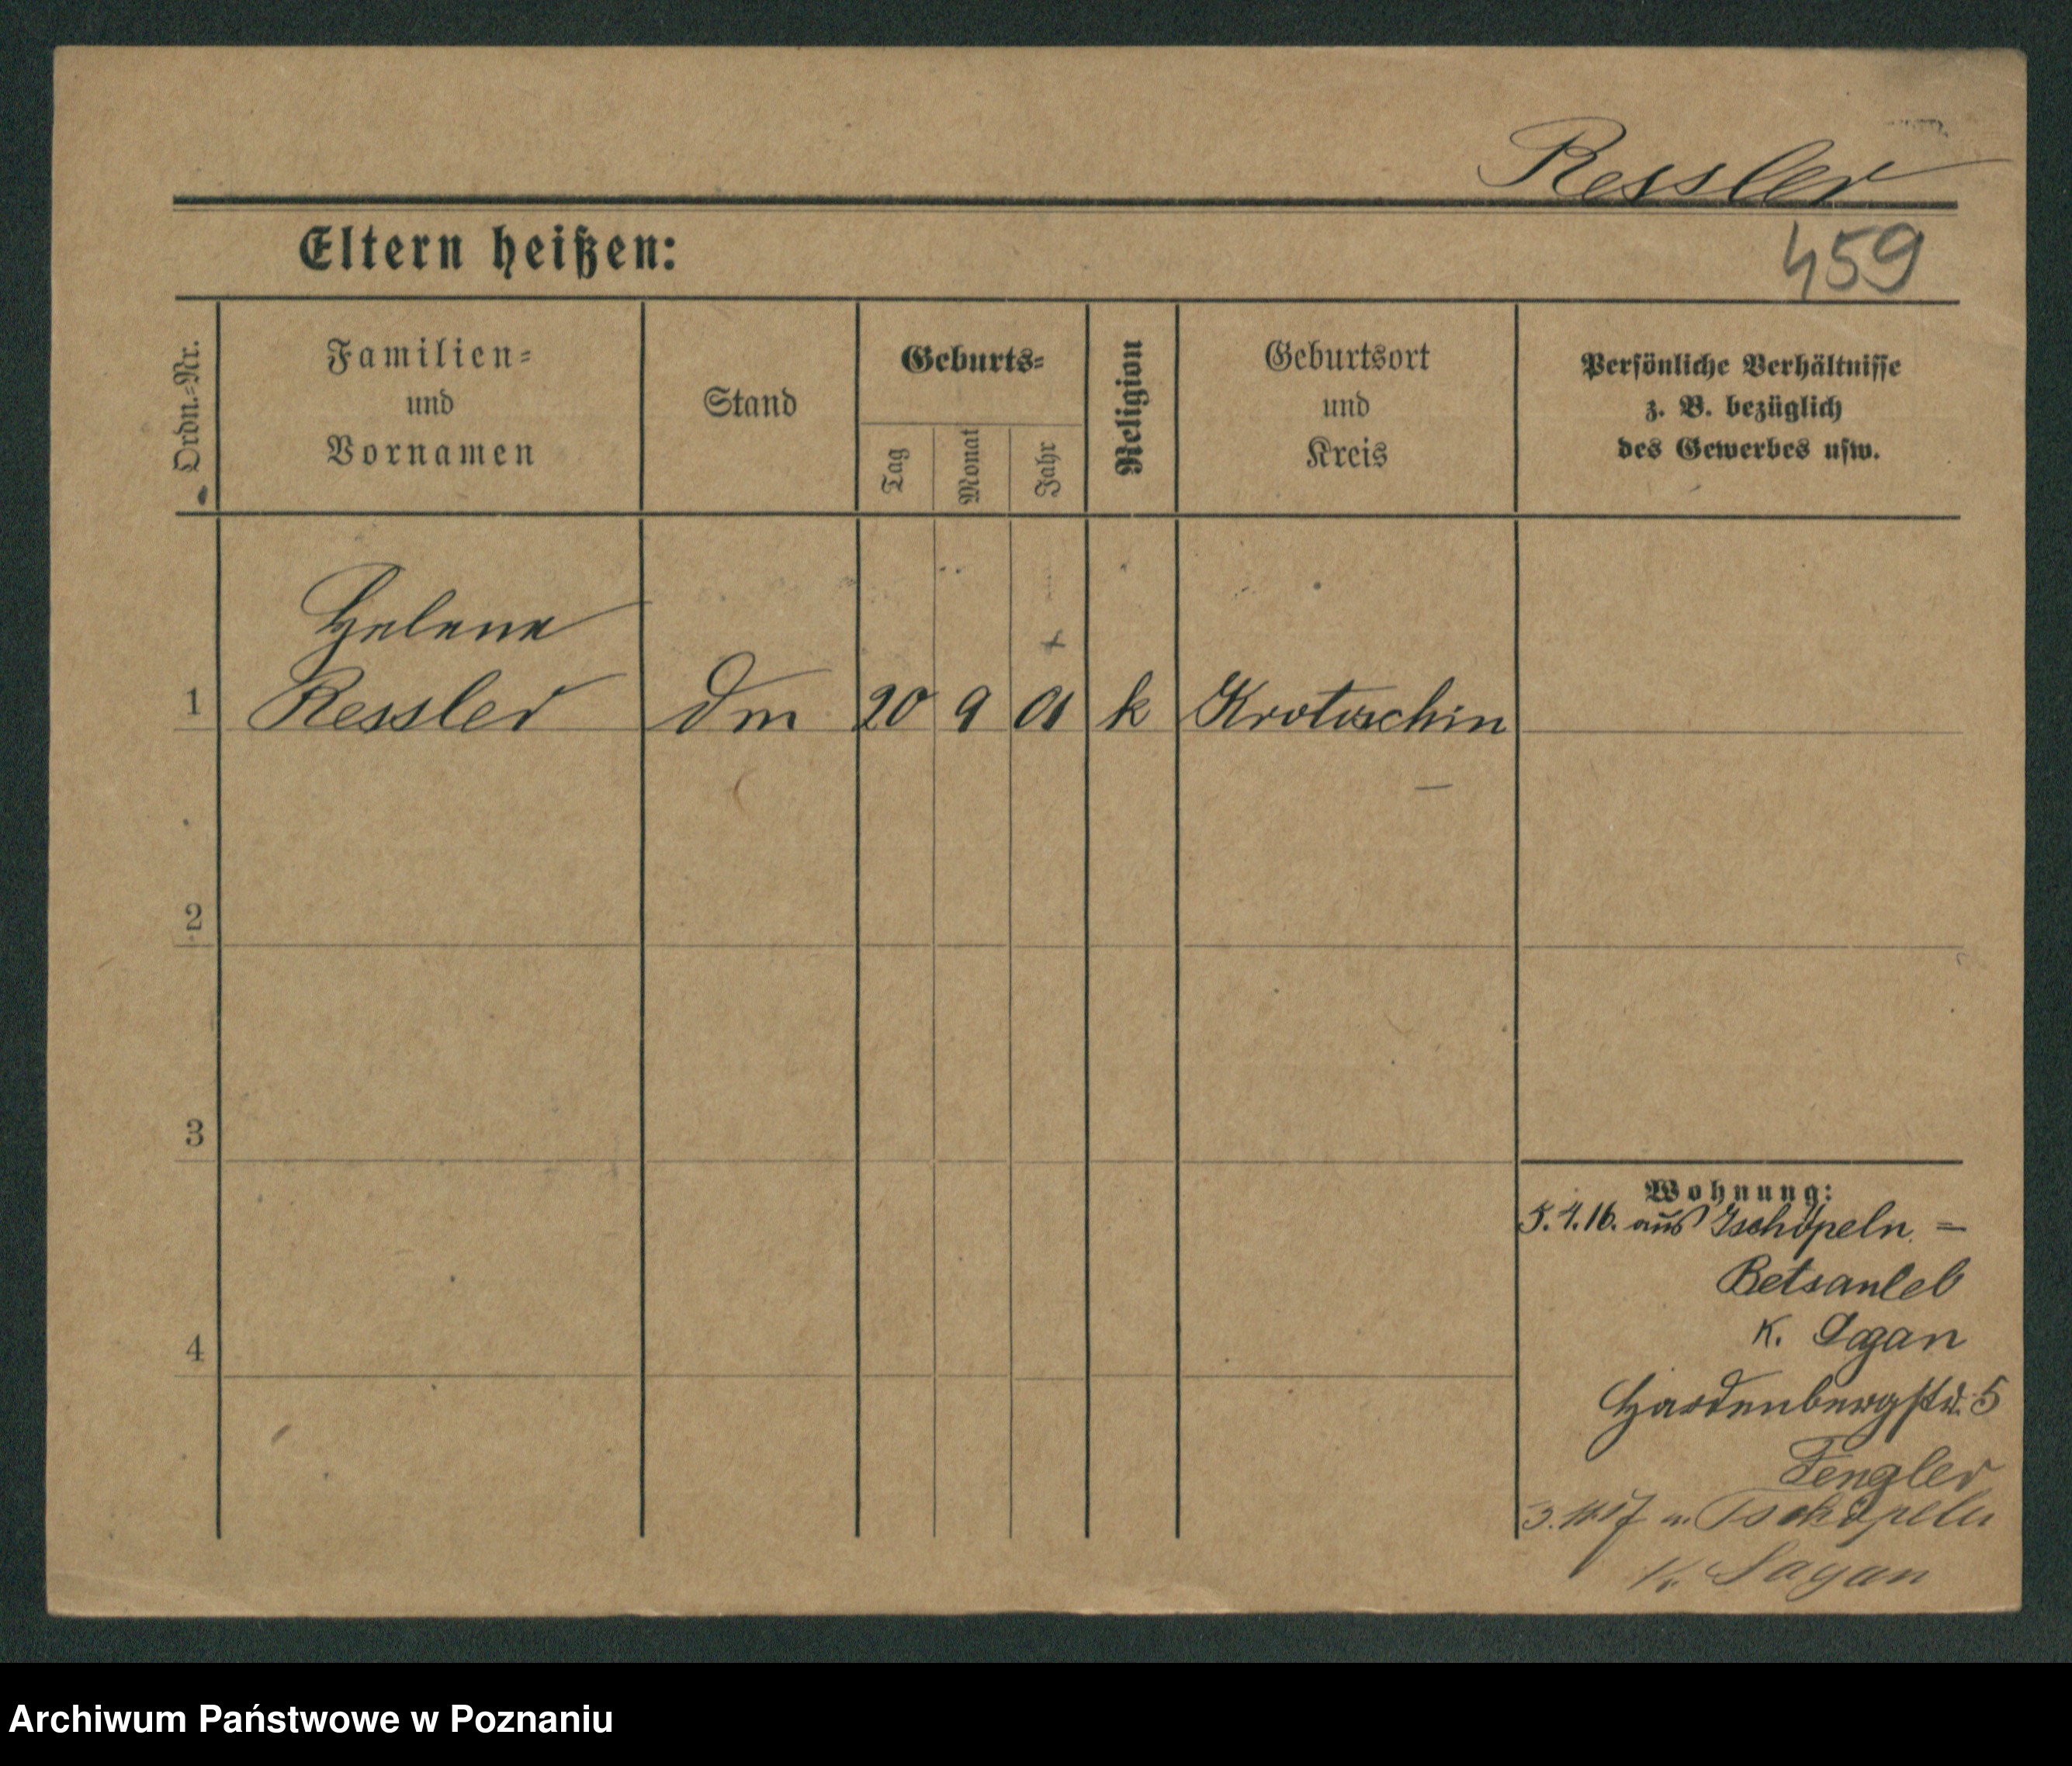 Ressler
Eltern heißen:
459
Ordn.-Nr.
Familien-
und
Vornamen
Stand
Geburts-
Tag
Monat
Jahr
Religion
Geburtsort
und
Kreis
Persönliche Verhältnisse
z. B. bezüglich
des Gewerbes usw.
Helene
1 Ressler Dm 20 9 01 k Krotoschin
2
3
4
Wohnung:
5.4.16. aus Tschöpeln =
K. Sagan
Hardenbergstr. 5
Fengler
Tschöpeln
K. Sagan
Archiwum Państwowe w Poznaniu